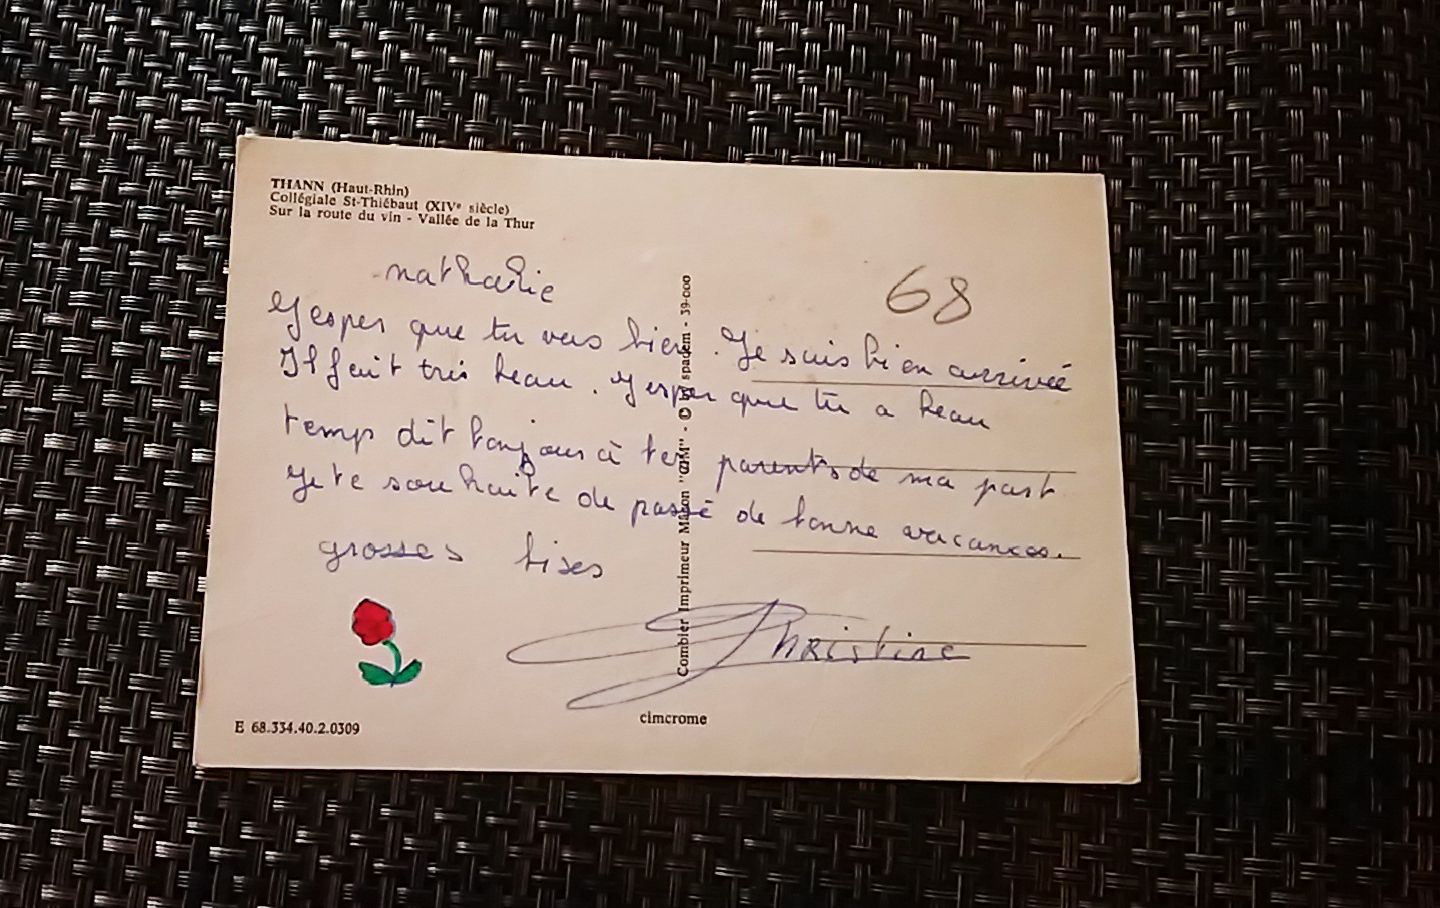 THANN (Haut-Rhin)
Collégiale St-Thiébaut (XIVe siècle)
Sur la route du vin - Vallée de la Thur
nathalie
68
J'esper que tu vas bien. Je suis bien arrivée
Il fait très beau. J'esper que tu a beau
temp dit bonjour à tes parents de ma part
Je te souhaite de passé de bonne vacances.
grosses bises
Christine
Combier Imprimeur Mâcon "CIM" - © by spadem - 39-000
cimcrome
E 68.334.40.2.0309